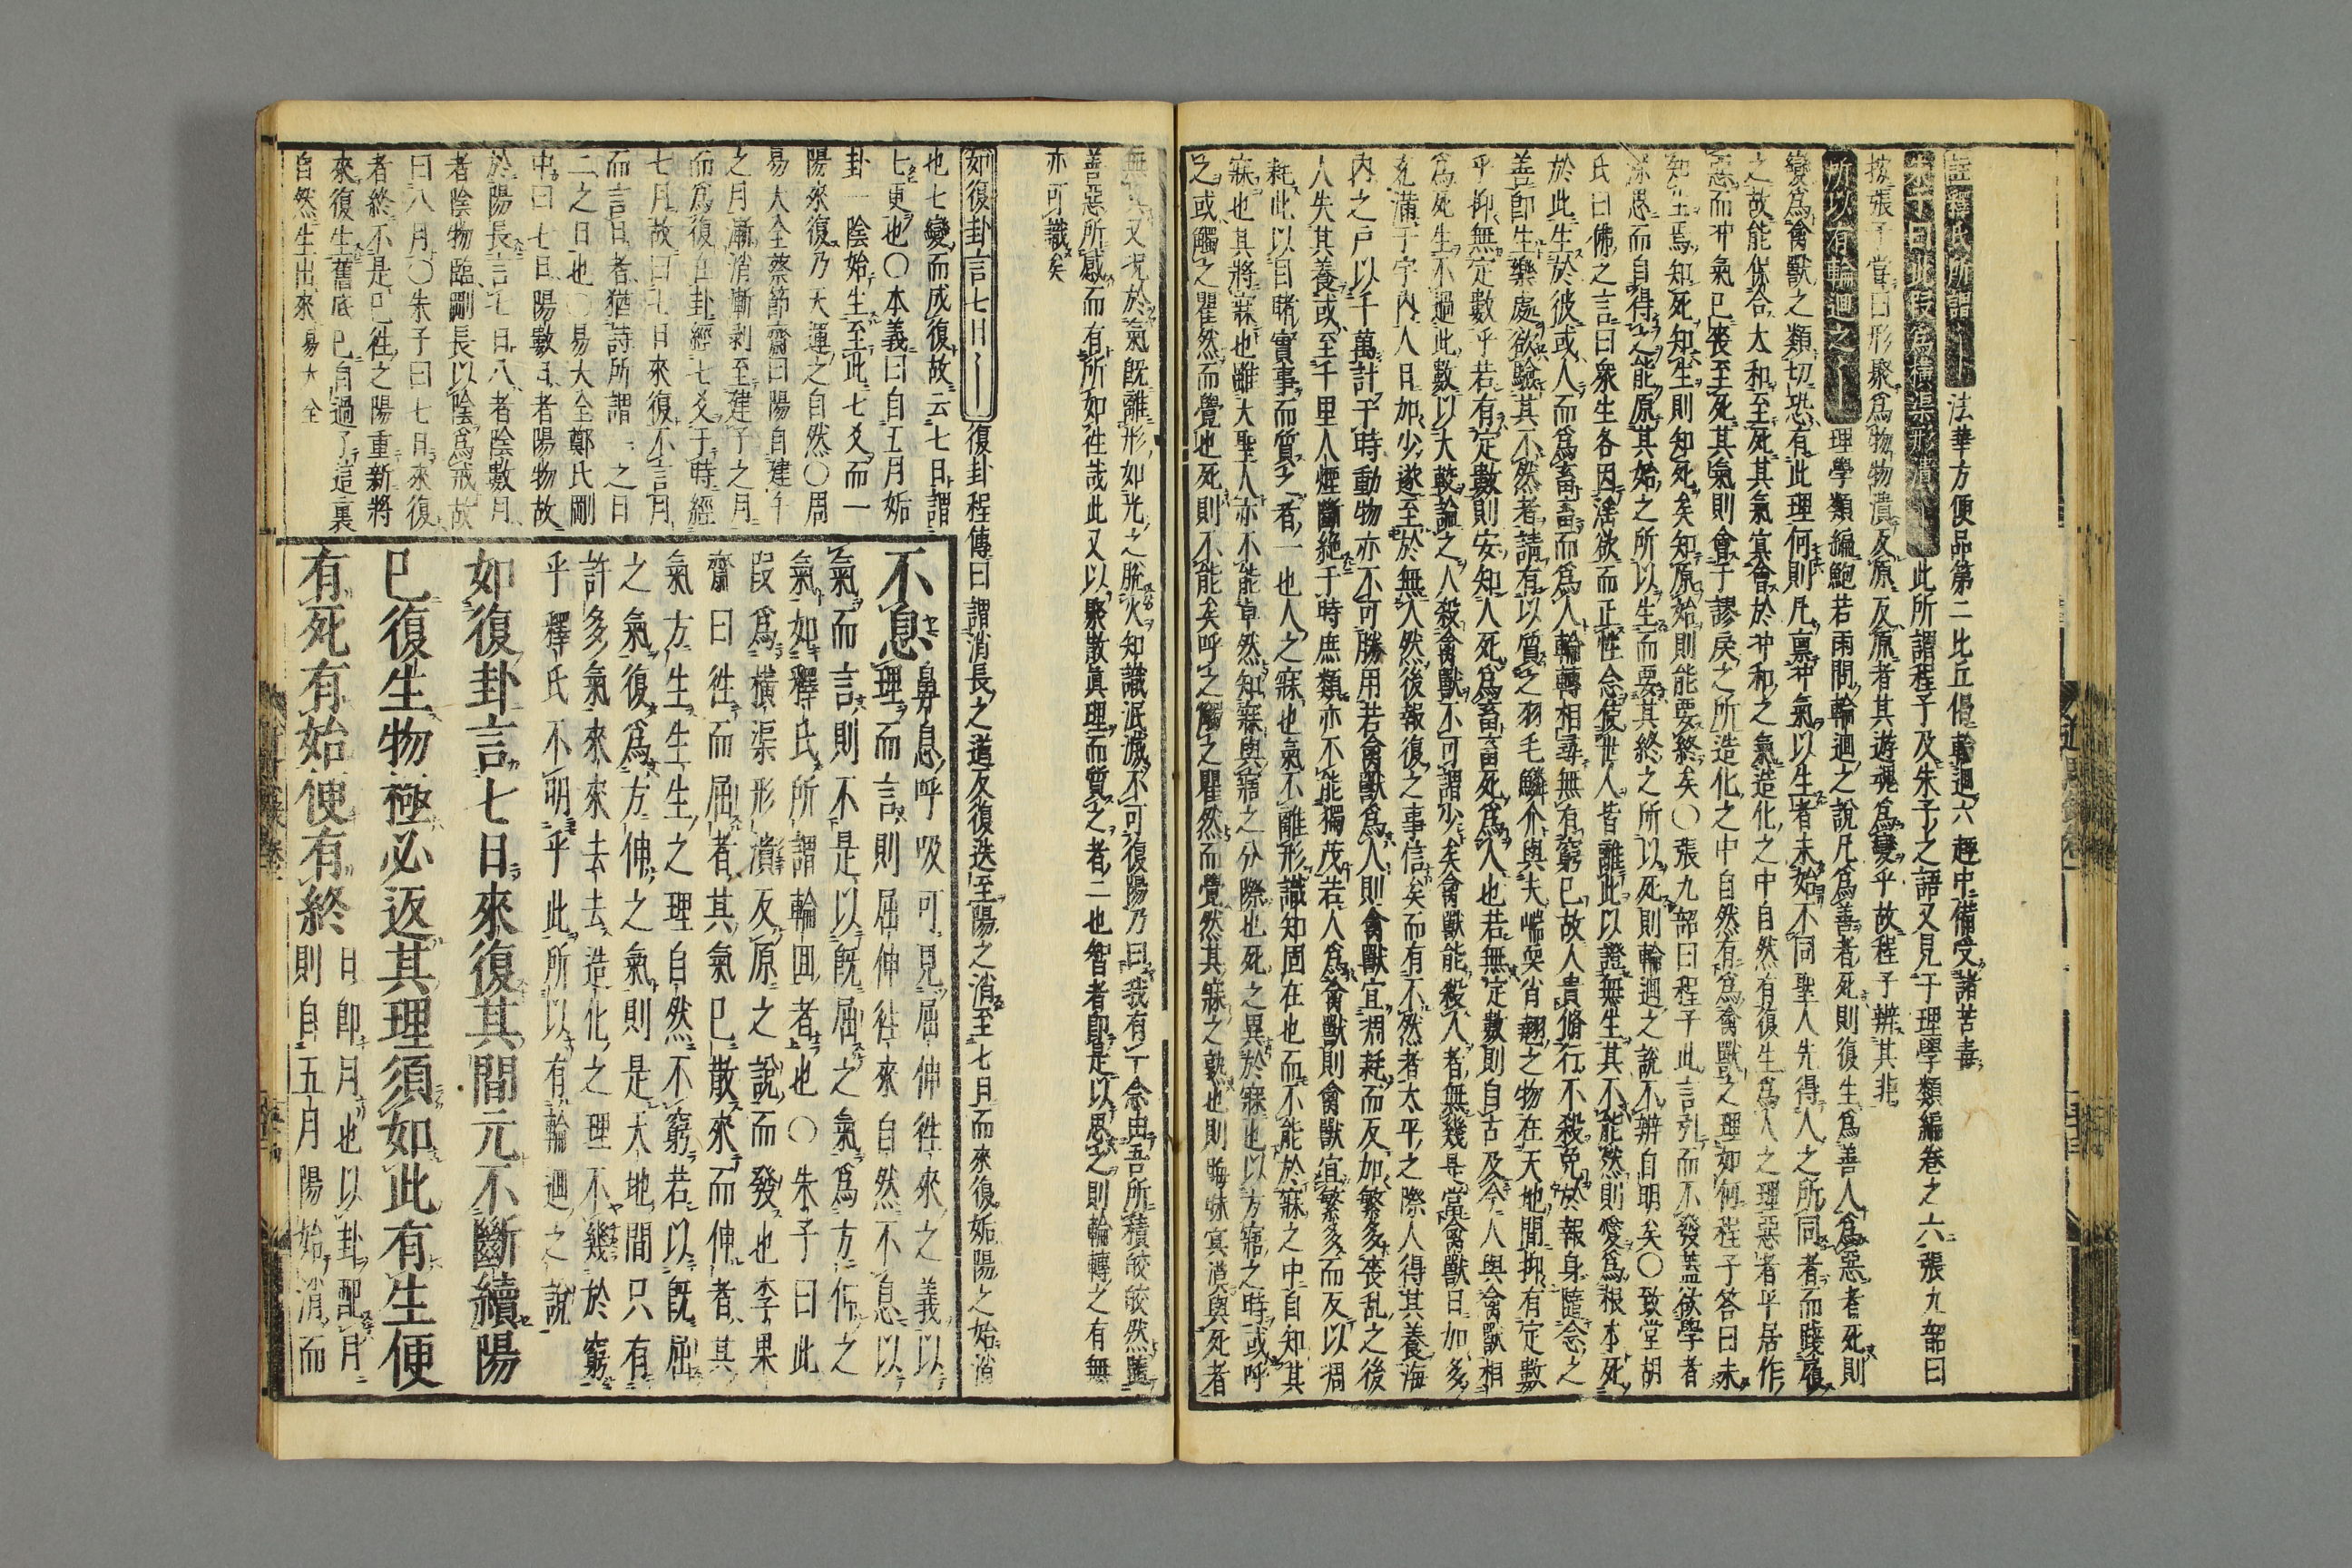 註釋氏所謂 法華方便品第二比丘偈輪迴六趣中備受諸苦毒
朱子曰此段爲橫渠形潰 此所謂程子及朱子之語又見于理學類編卷之六張九韶曰
按張子嘗曰形聚爲物物潰反原反原者其遊魂爲變乎故程子辨其非
所以有輪迴之 理學類編鮑若雨問輪迴之說凡爲善者死則復生爲善人爲惡者死則
變爲禽獸之類切恐有此理何則凡稟冲氣以生者未始不同聖人先得人之所同者而踐履
之故能保合太和至死其氣冥會於冲和之氣造化之中自然有復生爲人之理惡者平居作
惡而冲氣已喪至死其氣則會于謬戾之所造化之中自然有爲禽獸之理如何程子答曰未
知生焉知死知生則知死矣知原始則能要終矣○張九韶曰程子此言引而不發蓋欲學者
深思而自得之能原其始之所以生而要其終之所以死則輪迴之說不辨自明矣○致堂胡
氏曰佛之言曰衆生各因淫欲而正性念使世人皆離此以證無生其不能然則愛爲根本死
於此生於彼或人而爲畜畜而爲人輪轉相尋無有窮已故人貴脩行不殺免於報身隨念之
善卽生樂處欲驗其不然者請有以質之羽毛鱗介與夫喘耎肖翹之物在天地間抑有定數
乎抑無定數乎若有定數則安知人死爲畜畜死爲人也若無定數則自古及今人與禽獸相
爲死生不過此數以大較論之人殺禽獸不可謂少矣禽獸能殺人者無幾是當禽獸日加多
充滿于宇內人日加少遂至於無人然後報復之事信矣而有不然者太平之際人得其養海
內之戶以千萬計于時動物亦不可勝用若禽獸爲人則禽獸宜凋耗而反加繁多喪乱之後
人失其養或至千里人煙斷絶于時庶類亦不能獨茂若人爲禽獸則禽獸宜繁多而反以凋
耗此以目睹實事而質之者一也人之寐也氣不離形識知固在也而不能於寐之中自知其
寐也其將寐也雖大聖人亦不能卓然知寐與寤之分際也死之異於寐也以方寤之時或呼
之或觸之瞿然而覺也死則不能矣呼之觸之瞿然而覺然其寐之熟也則晦昧冥漠與死者
無異又況於氣旣離形如光之脫火知識泯滅不可復陽乃曰我有一念由吾所積皎皎然隨
善惡所感而有所如往哉此又以聚散眞理而質之者二也智者卽是以思之則輪轉之有無
亦可識矣
如復卦言七日 復卦程傳曰謂消長之道反復迭至陽之消至七月而來復姤陽之始消
也七變而成復故云七日謂
七更也○本義曰自五月姤
卦一陰始生至此七爻而一
陽來復乃天運之自然○周
易大全蔡節齋曰陽自建午
之月漸消漸剥至建子之月
而爲復在卦經七爻于時經
七月故曰七日來復不言月
而言日者猶詩所謂一之日
二之日也○易大全鄭氏剛
中曰七日陽數日者陽物故
於陽長言七日八者陰數月
者陰物臨剛長以陰爲戒故
曰八月○朱子曰七日來復
者終不是已徃之陽重新將
來復生舊底已自過了這裏
自然生出來易大全
不息鼻息呼吸可見屈伸徃來之義以
理而言則屈伸徃來自然不息以
氣而言則不是以旣屈之氣爲方伸之
氣如釋氏所謂輪回者也○朱子曰此
段爲橫渠形潰反原之說而發也李果
齋曰徃而屈者其氣已散來而伸者其
氣方生生生之理自然不窮若以旣屈
之氣復爲方伸之氣則是天地間只有
許多氣來來去去造化之理不幾於窮
乎釋氏不明乎此所以有輪迴之說
如復卦言七日來復其間元不斷續陽
已復生物極必返其理須如此有生便
有死有始便有終 日卽月也以卦配月
則自五月陽始消而